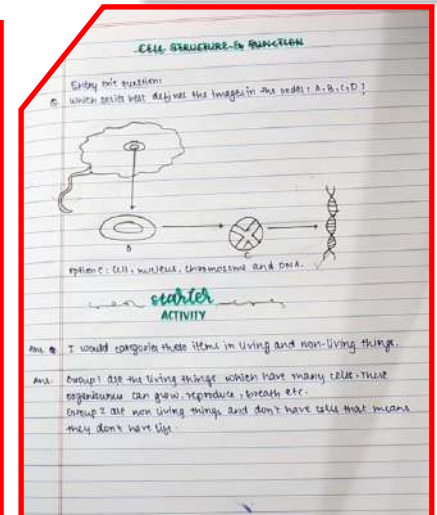 CELL STRUCTURE & FUNCTION
Entry exit questions
Q. Which series best defines the images in the order: A, B, C, D?
B
C
option C: Cell, nucleus, chromosome and DNA.
starter
ACTIVITY
Ans. I would categories these items in living and non-living things.
Ans. Group 1 are the living things which have many cells. These
organisums can grow, reproduce, breath etc.
Group 2 are non living things and don't have cells that means
they don't have life.